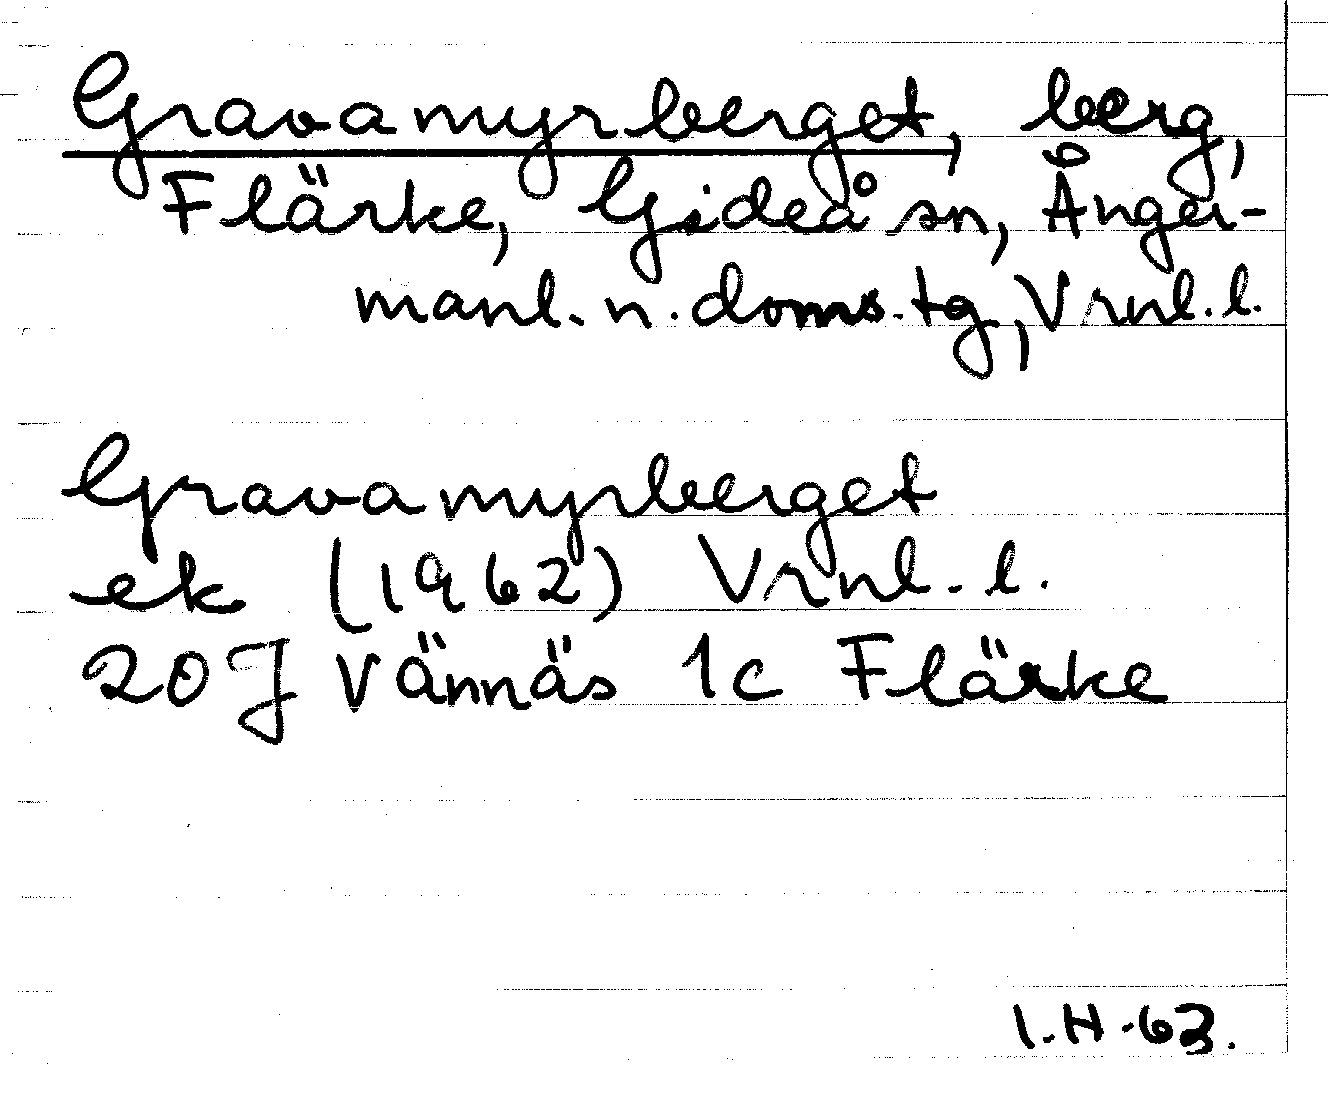 Gravamyrberget, berg,
Flärke, Gideå sn, Ånger-
manl. n. doms. tg, Vrnl. l.
Gravamyrberget
ek (1962) Vrnl. l.
20J Vännäs 1c Flärke
I.H.63.